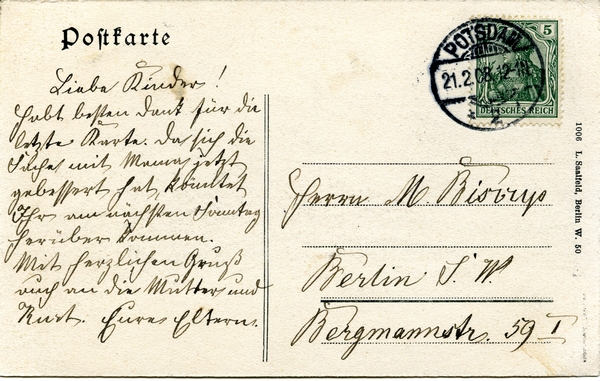 Postkarte
Liebe Kinder!
Habt besten Dank für die
letzte Karte. Da sich die
Sache mit Mama jetzt
gebessert hat könntet
Ihr am nächsten Sonntag
herüber kommen.
Mit herzlichen Gruß
auch an die Mutter und
Kurt. Eure Eltern.
POTSDAM
21.2.08.12-1N.
2
5
DEUTSCHES REICH
Herrn M.
Berlin S. W.
Bergmannstr. 59 I
1006 L. Saalfeld, Berlin W. 50